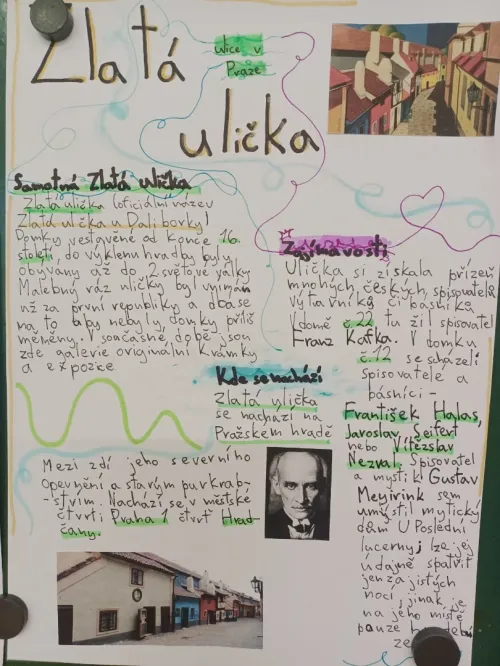 Zlatá
ulička
ulice v
Praze
Samotná Zlatá ulička
Zlatá ulička (oficiální název
Zlatá ulička u Daliborky)
Domky vestavěné od konce 16.
století, do výklenku hradby byly
obývány až do 2. světové války
Malebný ráz uličky byl vnímán
už za první republiky a dbase
na to aby nebyly, domky příliš
měněny. V současné době jsou
zde galerie originalní krámky
a expozice
Kde se nachází
Zlatá ulička
se nachází na
Pražském hradě
Mezi zdí jeho severního
opevnění a starým purkrab-
-stvím. Nachází se v městské
čtvrti Praha 1 čtvrť Hrad-
čany.
Zajímavosti
Ulička si získala přízeň
mnohých, českých, spisovatelů
výtvarníků či básníků
V domě č.22 tu žil spisovatel
Franz Kafka. V domku
č.12 se scházeli
spisovatelé a
básníci -
František Halas,
Jaroslav Seifert
nebo Vítězslav
Nezval. Spisovatel
a mystik Gustav
Meyrink sem
umístil mytický
dům U Poslední
lucerny, lze jej
údajně spatřit
jen za jistých
nocí, jinak je
na jeho místě
pouze